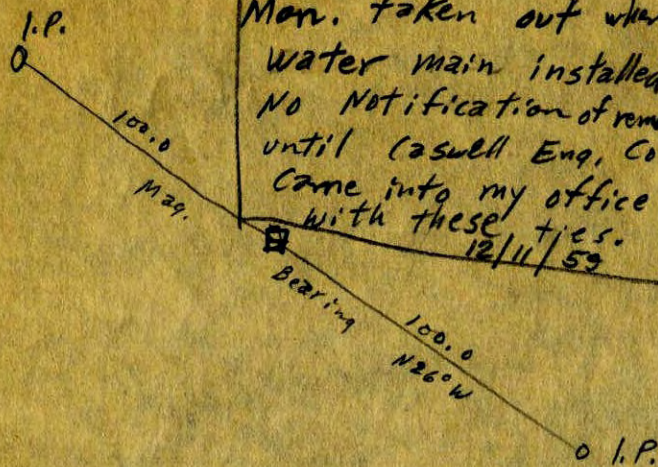 I.P.
Mon. taken out
water main installed
No Notification of
until Caswell Eng. Co
Came into my office
with these ties.
12/11/59
100.0
Mag.
Bearing
100.0
N26°W
I.P.